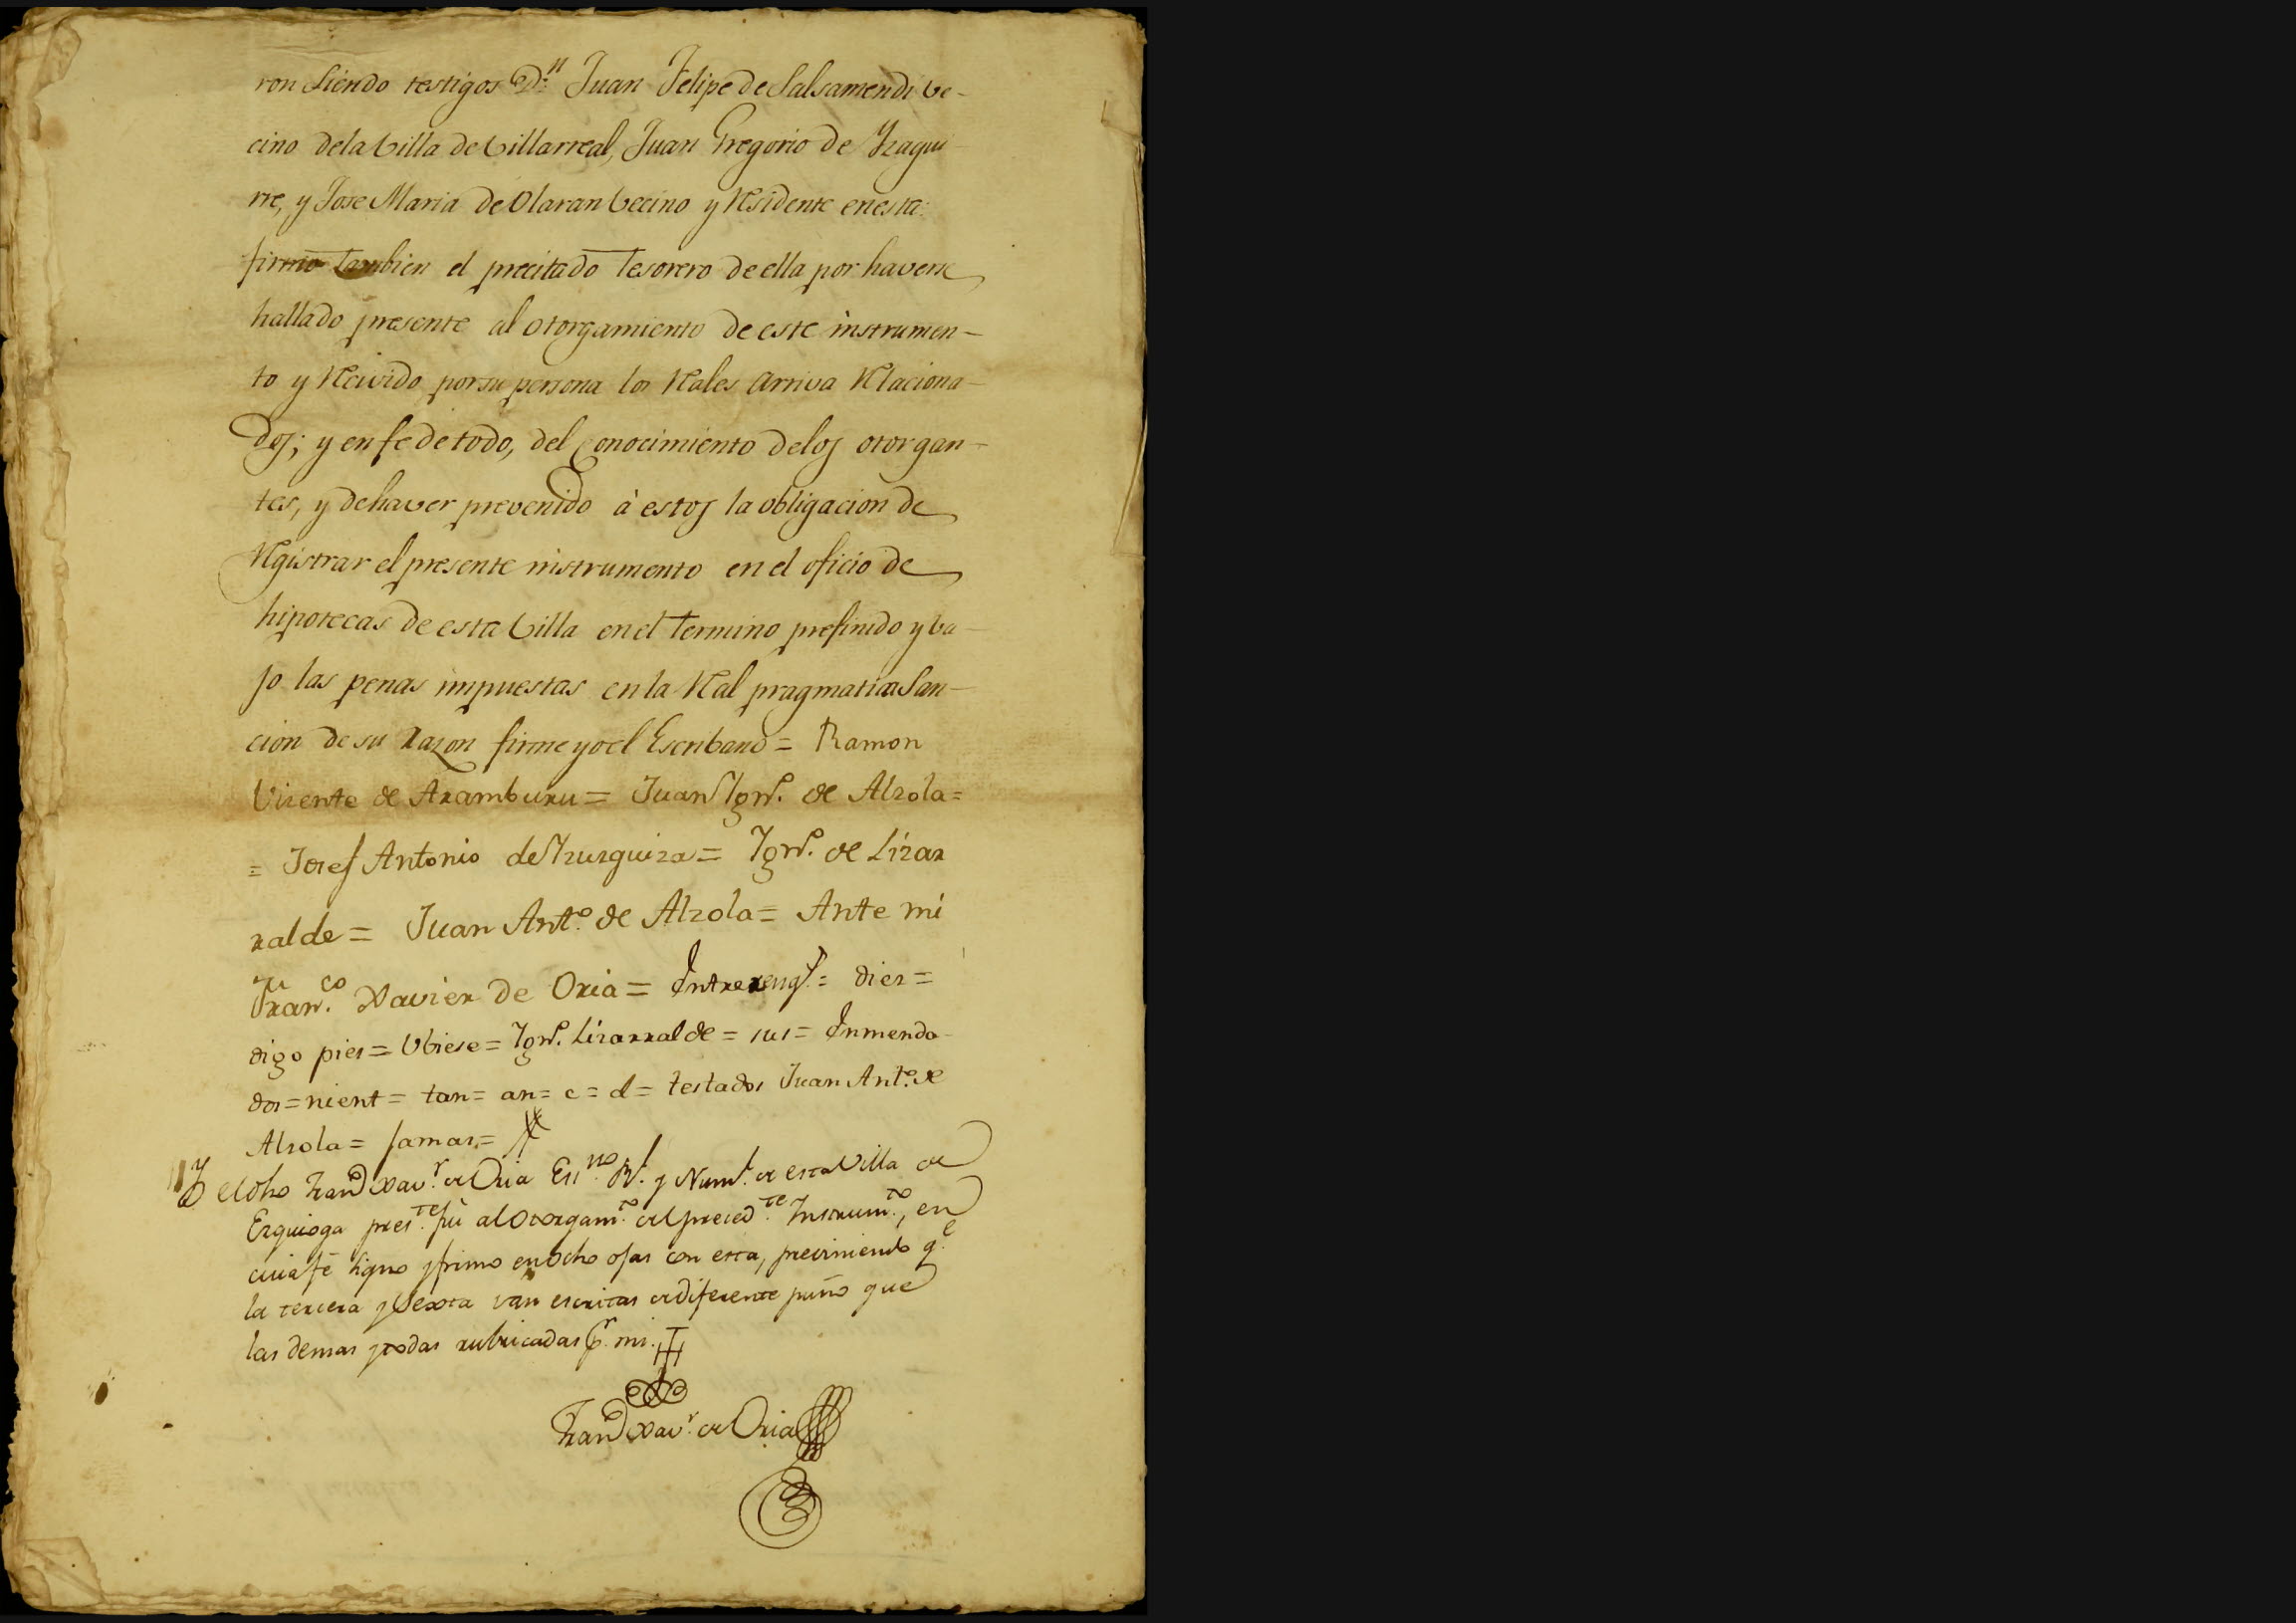 ron siendo testigos D.n Juan Felipe de Salsamendi ve-
cino dela Villa de Villarreal, Juan Gregorio de Yzagui-
rre, y Jose Maria de Olaran Vecino y Residente en esta:
firmó tambien el precitado Tesorero de ella por haverse
hallado presente al otorgamiento de este instrumen-
to y Recivido por su persona los Reales arriva Relaciona-
dos; y en fe de todo, del Conocimiento delos otorgan-
tes, y de haver prevenido à estos la obligacion de
Registrar el presente instrumento en el oficio de
hipotecas de esta Villa en el termino prefinido y ba-
jo las penas impuestas en la Real pragmatica San-
cion de su Razon firme yo el Escribano = Ramon
Vizente de Aramburu = Juan Ign.o de Alzola =
= Josef Antonio de Yzurguiza = Ign.o de Lizar
ralde = Juan Ant.o de Alzola = Ante mi
Fran.co Xavier de Oria = Entrereng.s = diez =
digo pies = Ubiese = Ign.o Lizarralde = sus = Enmenda-
dos = nient = tan = an = c = d = testados Juan Ant.o de
Alzola = Jamas =
Yo el dho Fran.co Xav.r de Oria Ess.no R.l y Num.l de esta Villa de
Ezquioga pres.te fui al Otorgam.to del preced.te Instrum.to, en
cuia fé signo y firmo en Ocho ojas con esta, previniendo q.e
la tercera y Sexta van escritas de diferente puño que
las demas y todas rubricadas p.r mi.
Fran.co Xav.r de Oria